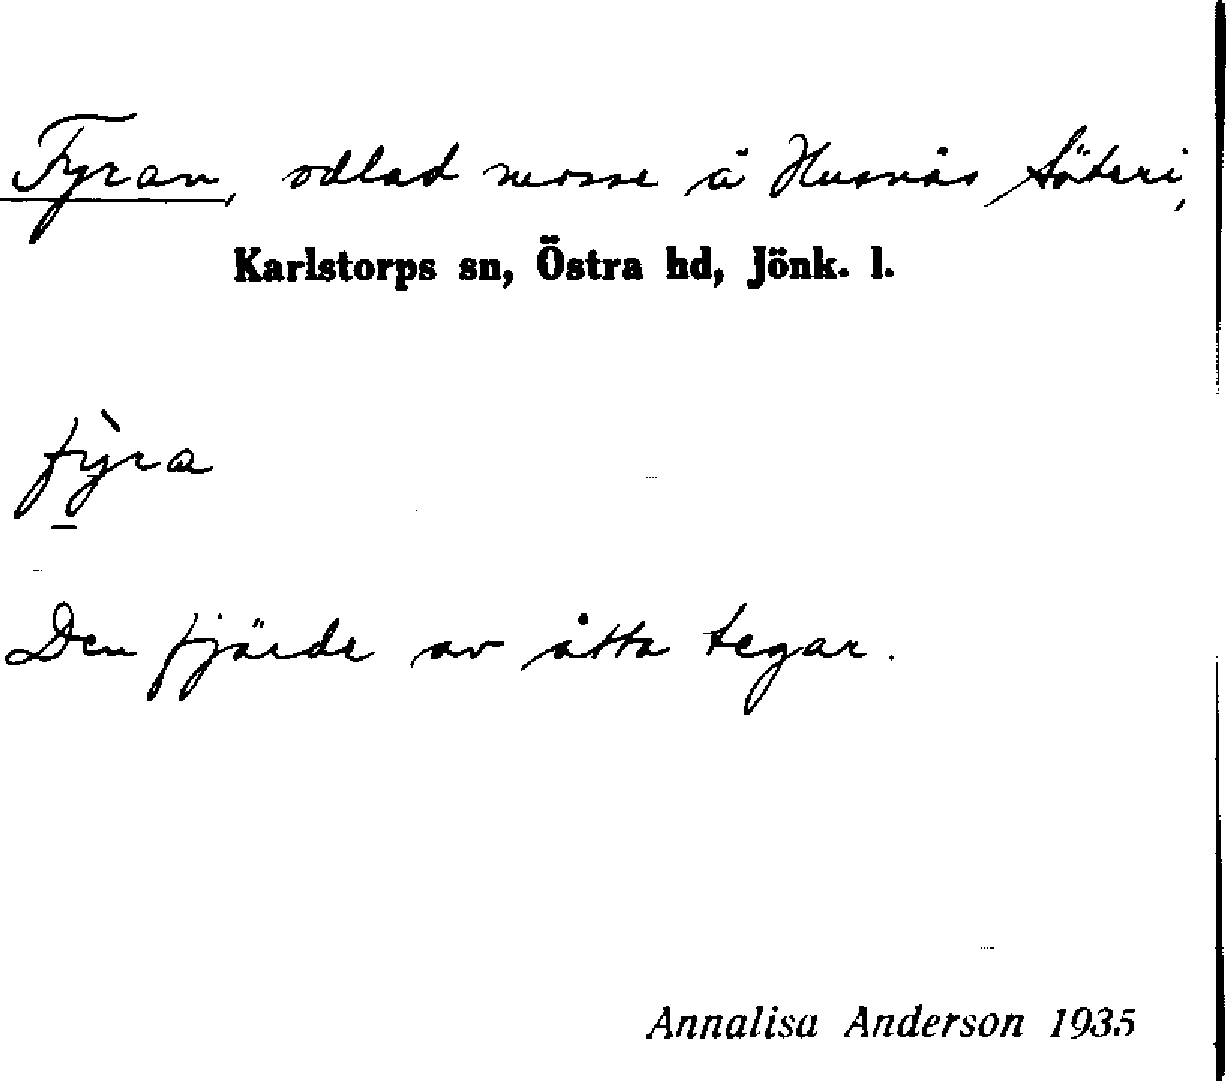 Fyran, odlad mosse å Husnäs Säteri,
Karlstorps sn, Östra hd, Jönk. l.
fỳ̱ra
Den fjärde av åtta tegar.
Annalisa Anderson 1935